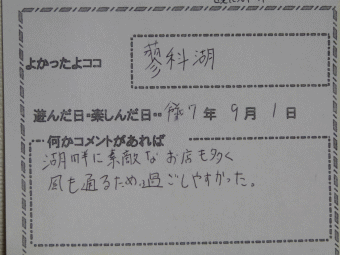 よかったよココ
蓼科湖
遊んだ日・楽しんだ日・・ 7年 9月 1日
何かコメントがあれば
湖畔に素敵なお店も多く
風も通るため、過ごしやすかった。